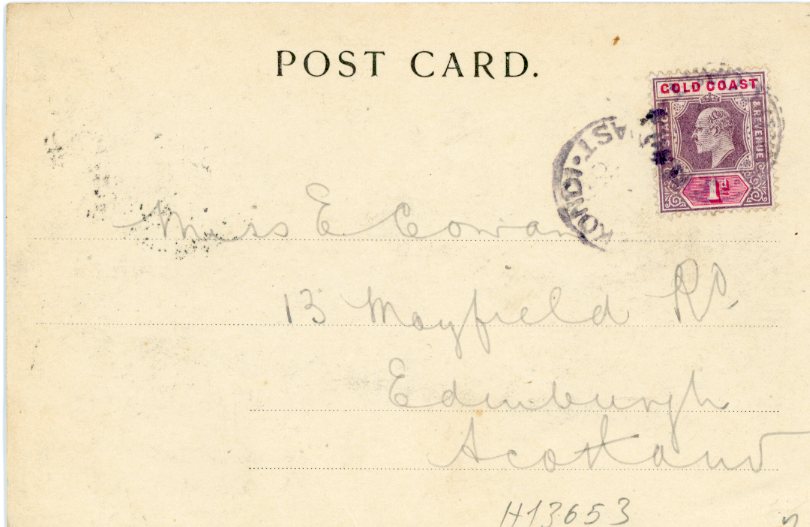 POST CARD.
GOLD COAST
& REVENUE
1d
Miss E Cowan
13 Mayfield Rd.
Edinburgh
Scotland
H13653